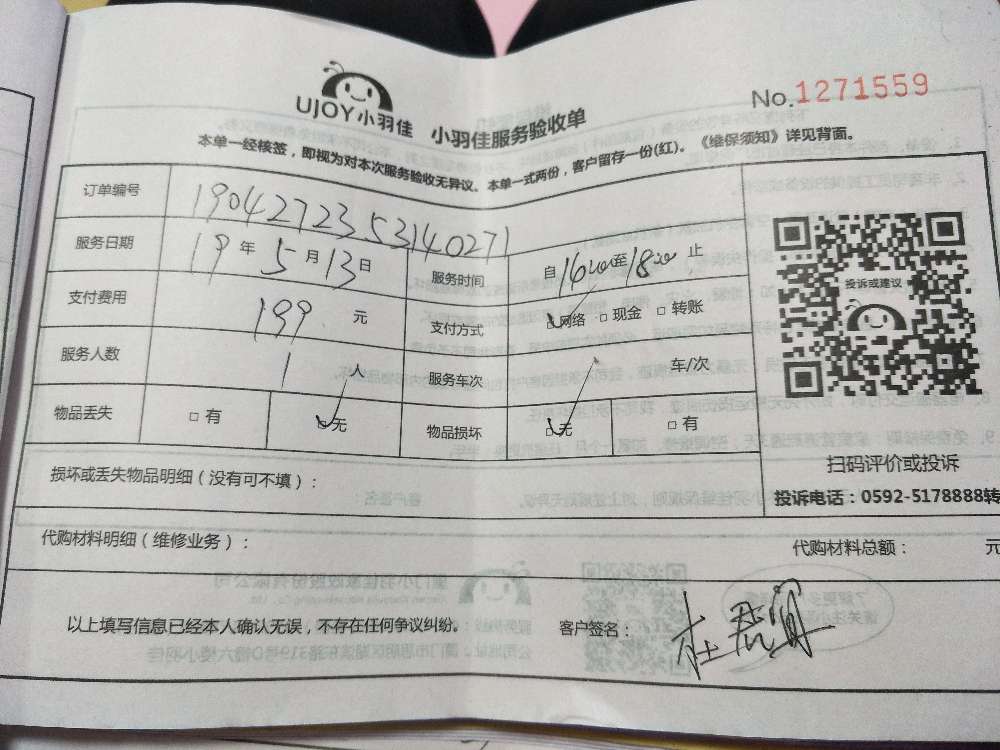 UJOY小羽佳 小羽佳服务验收单
No.1271559
本单一经核签，即视为对本次服务验收无异议。本单一式两份，客户留存一份(红)。《维保须知》详见背面。
订单编号 1904272353140271
服务日期 19年5月13日 服务时间 自1600至1800止
支付费用 199元 支付方式 □网络 □现金 □转账
投诉或建议
服务人数 1人 服务车次 车/次
物品丢失 □有 □无 物品损坏 □无 □有
扫码评价或投诉
损坏或丢失物品明细（没有可不填）：
投诉电话：0592-5178888转
代购材料明细（维修业务）：
代购材料总额： 元
以上填写信息已经本人确认无误，不存在任何争议纠纷。 客户签名：